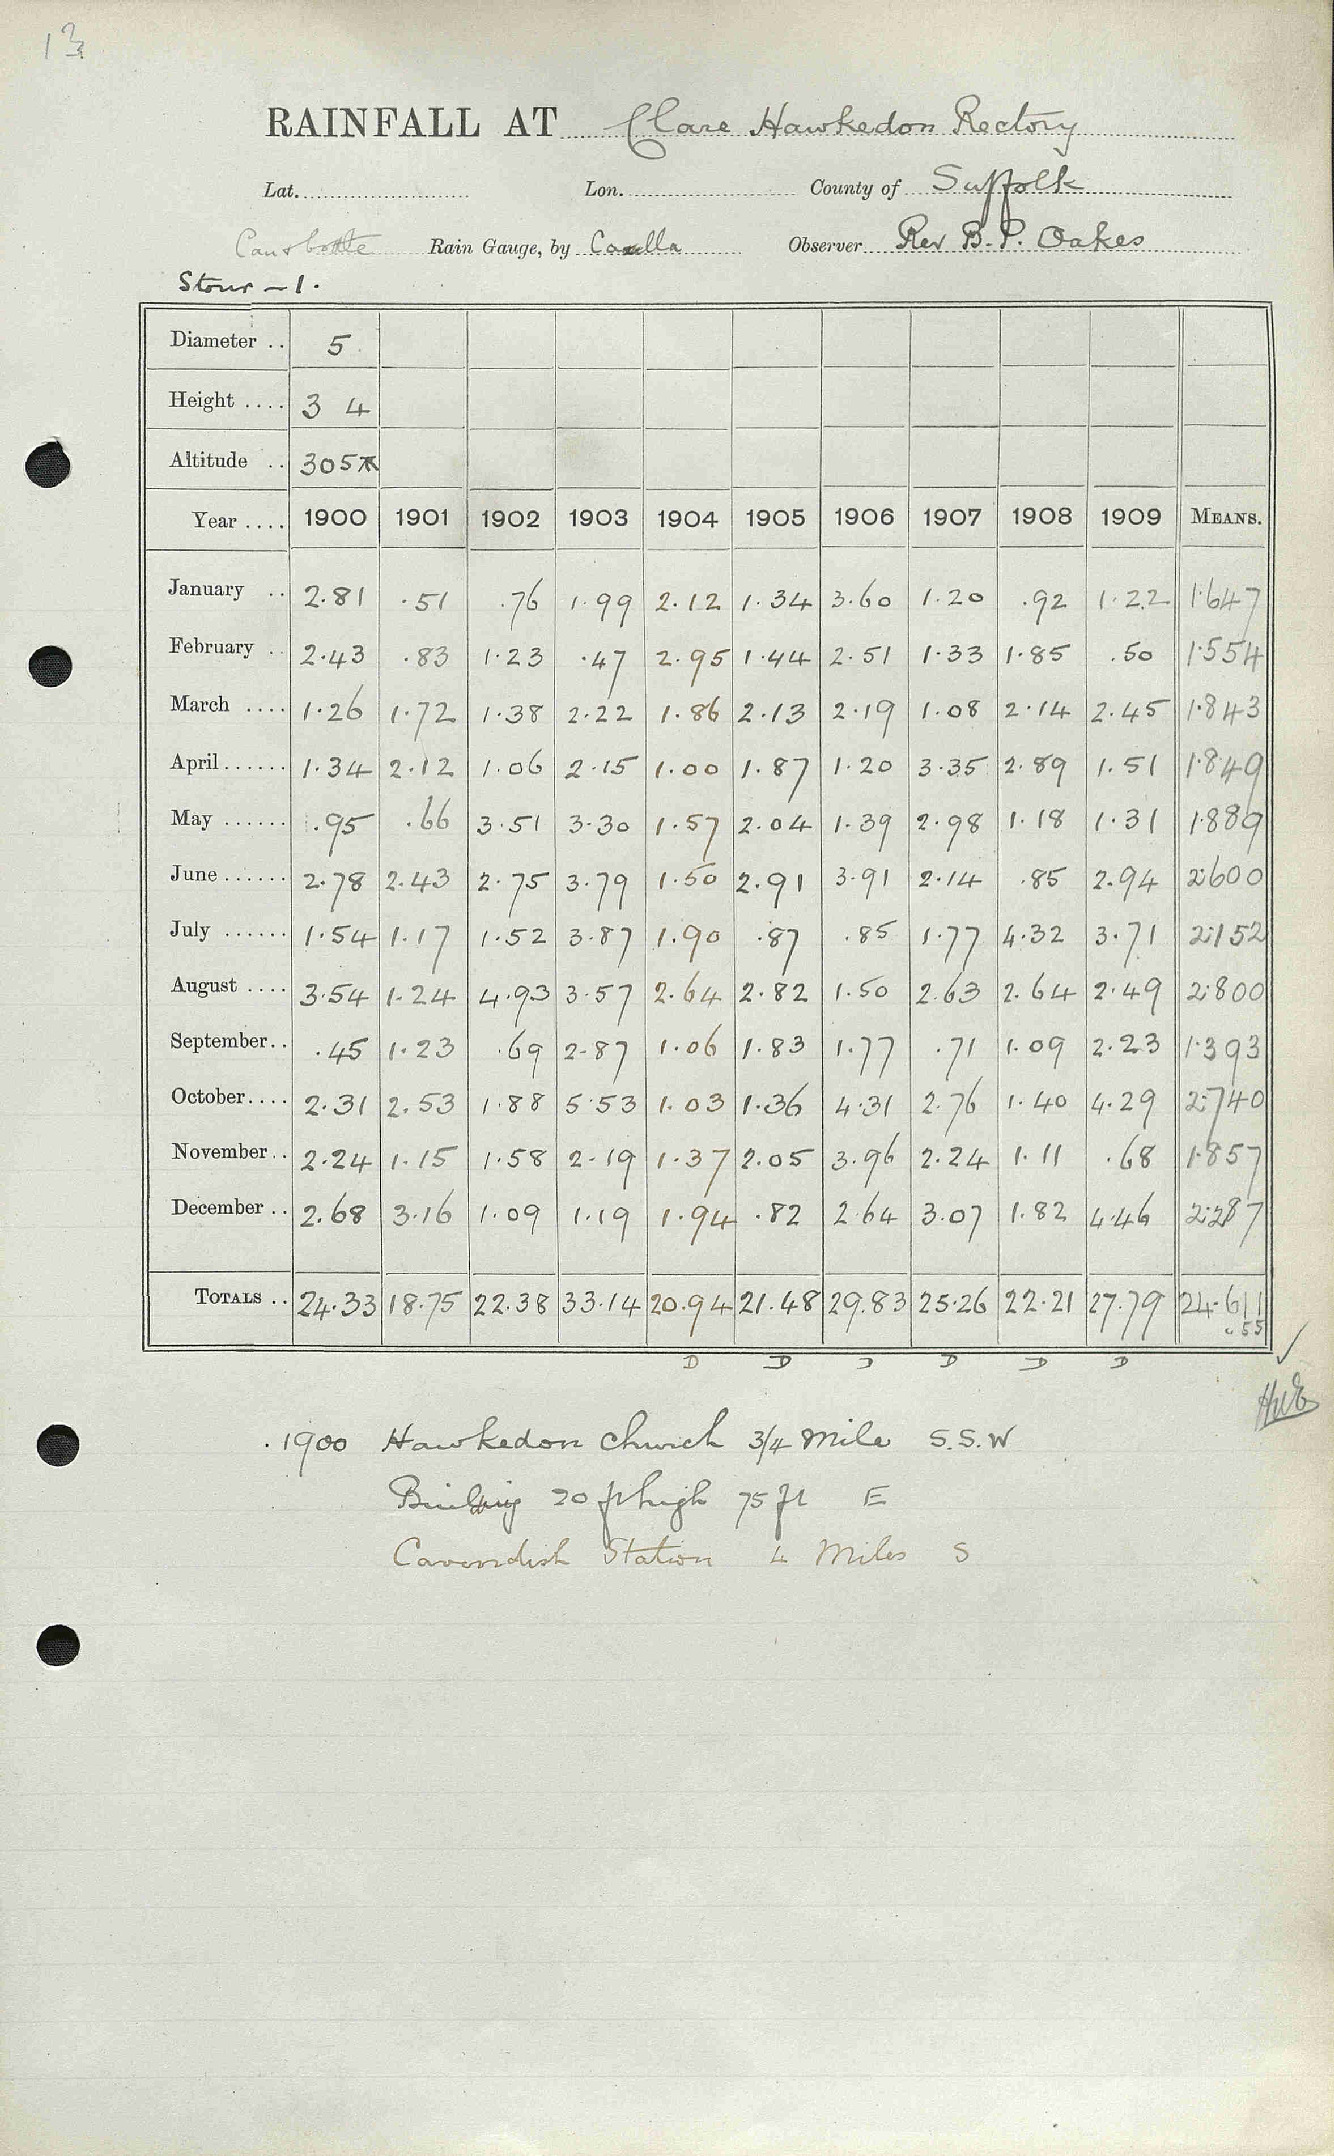 13
RAINFALL AT Clare Hawkedon Rectory
Lat. Lon. County of Suffolk
Rain Gauge, by Casella Observer Rev B. P. Oakes
Stour - 1.
Diameter .. 5
Height .... 3 4
Altitude .. 305
Year .... 1900 1901 1902 1903 1904 1905 1906 1907 1908 1909 MEANS.
January .. 2.81 .51 .76 1.99 2.12 1.34 3.60 1.20 .92 1.22 1.647
February .. 2.43 .83 1.23 .47 2.95 1.44 2.51 1.33 1.85 .50 1.554
March .... 1.26 1.72 1.38 2.22 1.86 2.13 2.19 1.08 2.14 2.45 1.843
April...... 1.34 2.12 1.06 2.15 1.00 1.87 1.20 3.35 2.89 1.51 1.849
May ...... .95 .66 3.51 3.30 1.57 2.04 1.39 2.98 1.18 1.31 1.889
June...... 2.78 2.43 2.75 3.79 1.50 2.91 3.91 2.14 .85 2.94 2.600
July ...... 1.54 1.17 1.52 3.87 1.90 .87 .85 1.77 4.32 3.71 2.152
August .... 3.54 1.24 4.93 3.57 2.64 2.82 1.50 2.63 2.64 2.49 2.800
September.. .45 1.23 .69 2.87 1.06 1.83 1.77 .71 1.09 2.23 1.393
October.... 2.31 2.53 1.88 5.53 1.03 1.36 4.31 2.76 1.40 4.29 2.740
November.. 2.24 1.15 1.58 2.19 1.37 2.05 3.96 2.24 1.11 .68 1.857
December .. 2.68 3.16 1.09 1.19 1.94 .82 2.64 3.07 1.82 4.46 2.287
TOTALS .. 24.33 18.75 22.38 33.14 20.94 21.48 29.83 25.26 22.21 27.79 24.611
.55
D D D D D D
1900 Hawkedon Church 3/4 Mile S.S.W
Building 20 ft high 75 ft E
Cavendish Station 4 Miles S